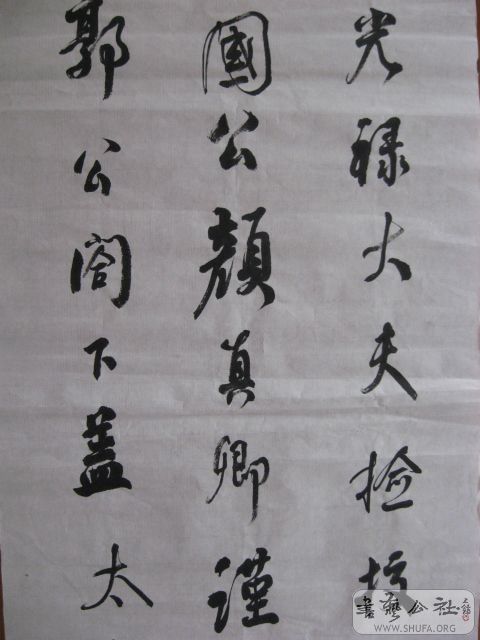 光禄大夫检校
國公顔真卿謹
郭公閤下盖太
書藝公社
WWW.SHUFA.ORG